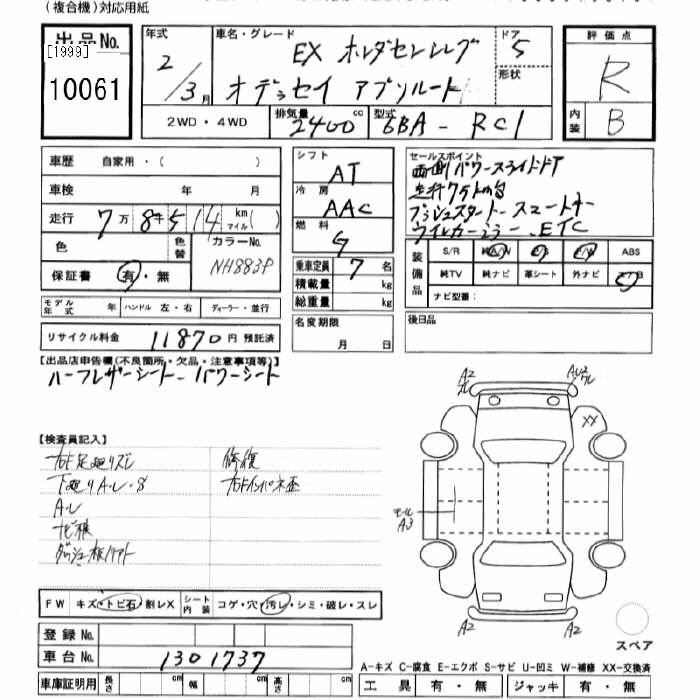 (複合機)対応用紙
出品No.
[1999]
10061
年式
2/3月
車名・グレード
EX ホンダセンシング
オデッセイ アブソルート
ドア
5
形状
評価点
R
内装
B
2WD・4WD
排気量
2400 cc
型式
6BA-RC1
車歴 自家用・( )
車検 年 月
走行 7万 8千 5 14 km マイル( )
色
色替
カラーNo.
NH883P
保証書 有・無
モデル年式 年 ハンドル 左・右 ディーラー・並行
リサイクル料金 11870 円 預託済
シフト
AT
冷房
AAC
燃料
G
乗車定員 7 名
積載量 kg
総重量 kg
名変期限
月 日
セールスポイント
両側パワースライドドア
走行7万km台
プッシュスタート・スマートキー
ウインカーミラー、ETC
装備品
S/R ABS
純TV 純ナビ 革シート 外ナビ
ナビ型番:
後日品
【出品店申告欄(不良箇所・欠品・注意事項等)】
ハーフレザーシート パワーシート
【検査員記入】
修復
下廻りAル・S
Aル
FW キズ・トビ石・割レX シート内装 コゲ・穴・汚レ・シミ・破レ・スレ
登録No.
車台No. 1301737
車庫証明用 長さ cm 幅 cm 高さ cm
A2
XX
モール
A3
A2
A2
スペア
A-キズ C-腐食 E-エクボ S-サビ U-凹ミ W-補修 XX-交換済
工具 有・無 ジャッキ 有・無